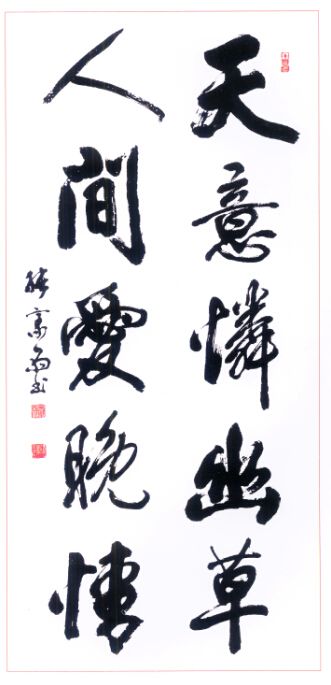 天意憐幽草
人間愛晚情